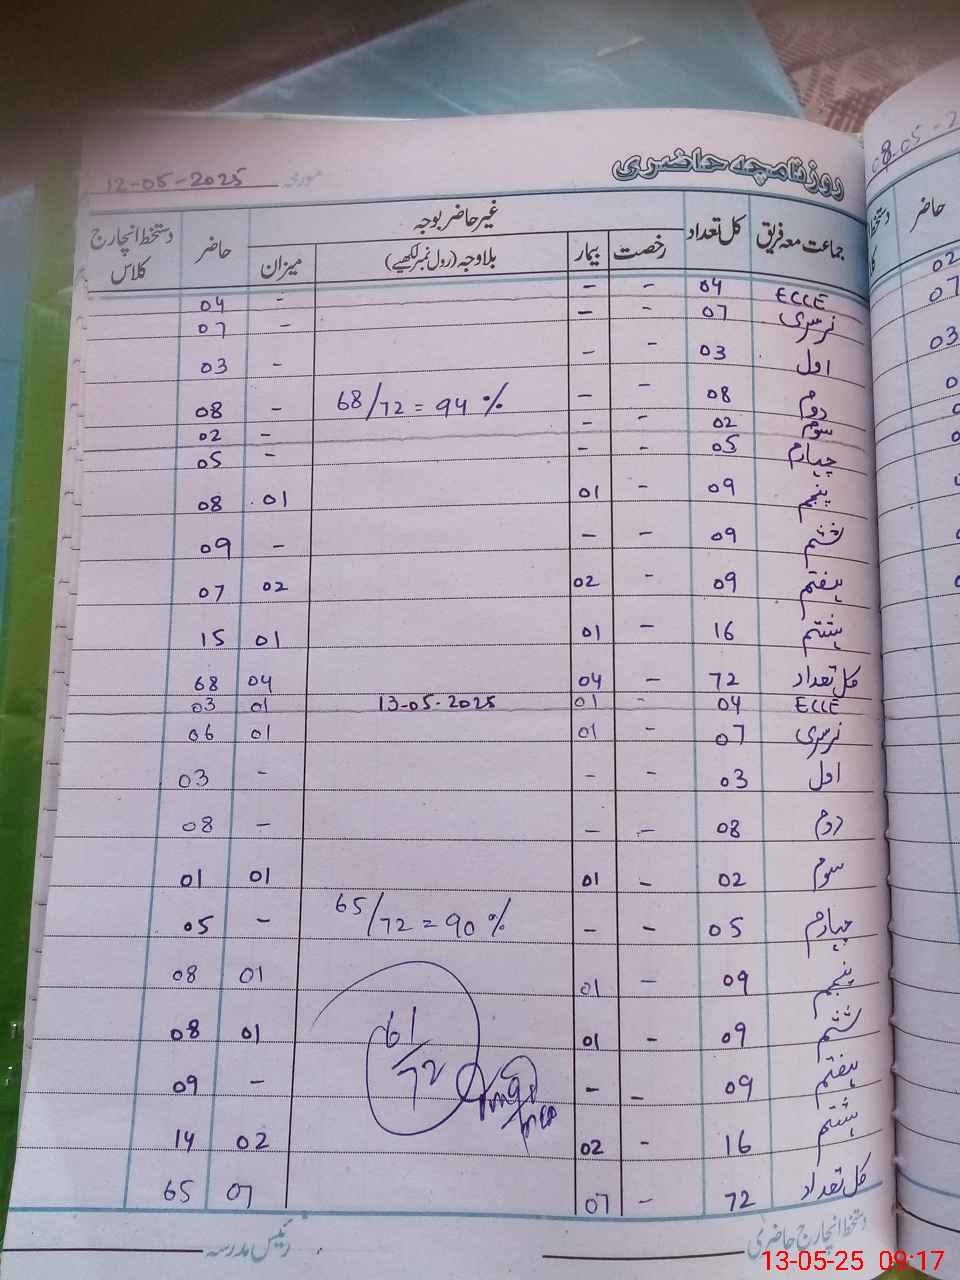 روزنامچہ حاضری
مورخہ 12-05-2025
جماعت معہ فریق کل تعداد غیر حاضر بوجہ حاضر دستخط انچارج کلاس
رخصت بیمار بلاوجہ (رول نمبر لکھیے) میزان
ECCE 04 - - - 04
نرسری 07 - - - 07
اول 03 - - - 03
دوم 08 - - 68/72 = 94 % - 08
سوم 02 - - - 02
چہارم 05 - - - 05
پنجم 09 - 01 01 08
ششم 09 - - - 09
ہفتم 09 - 02 02 07
ہشتم 16 - 01 01 15
کل تعداد 72 - 04 04 68
ECCE 04 - 01 13-05-2025 01 03
نرسری 07 - 01 01 06
اول 03 - - - 03
دوم 08 - - - 08
سوم 02 - 01 01 01
چہارم 05 - - 65/72 = 90 % - 05
پنجم 09 - 01 01 08
ششم 09 - 01 01 08
61/72
ہفتم 09 - - - 09
ہشتم 16 - 02 02 14
کل تعداد 72 - 07 07 65
دستخط انچارج حاضری رئیس مدرسہ
08-05-2
حاضر
02
07
03
13-05-25 09:17